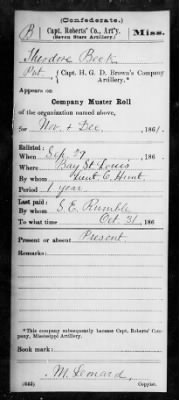 (Confederate.)
B | Capt. Roberts' Co., Art'y. (Seven Stars Artillery.) | Miss.
Theodore Bock
Pvt., { Capt. H. G. D. Brown's Company Artillery.*
Appears on
Company Muster Roll
of the organization named above,
for Nov. & Dec., 1861.
Enlisted:
When Sep. 29, 186 .
Where Bay St. Louis
By whom Lieut. C. Hunt
Period 1 year
Last paid:
By whom S. E. Rumble
To what time Oct 31, 186 .
Present or absent Present
Remarks:
*This company subsequently became Capt. Roberts' Company, Mississippi Artillery.
Book mark:
M. Leonard
(642) Copyist.